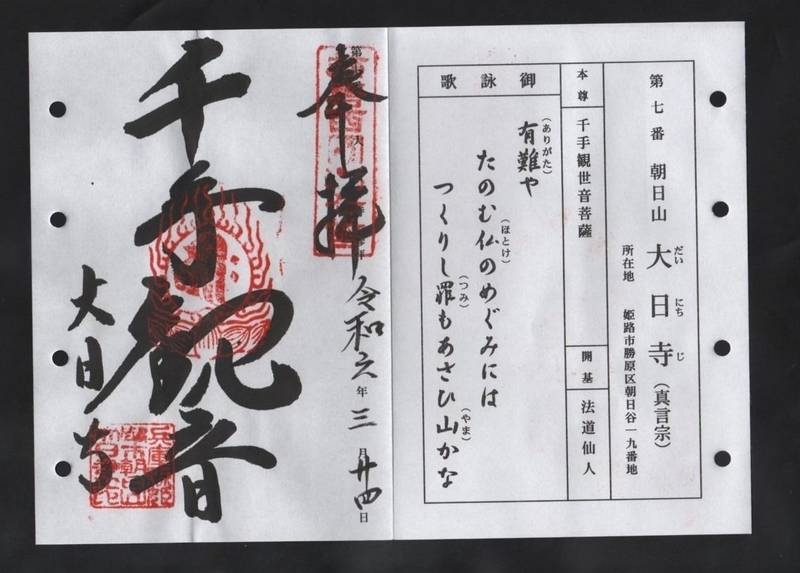 第七番 朝日山 大日寺(真言宗)
だいにちじ
所在地 姫路市勝原区朝日谷一九番地
本尊 千手観世音菩薩
開基 法道仙人
御詠歌
有難や
(ありがた)
たのむ仏のめぐみには
(ほとけ)
つくりし罪もあさひ山かな
(つみ)
(やま)
奉拝
令和六年三月廿四日
千手観音
大日寺